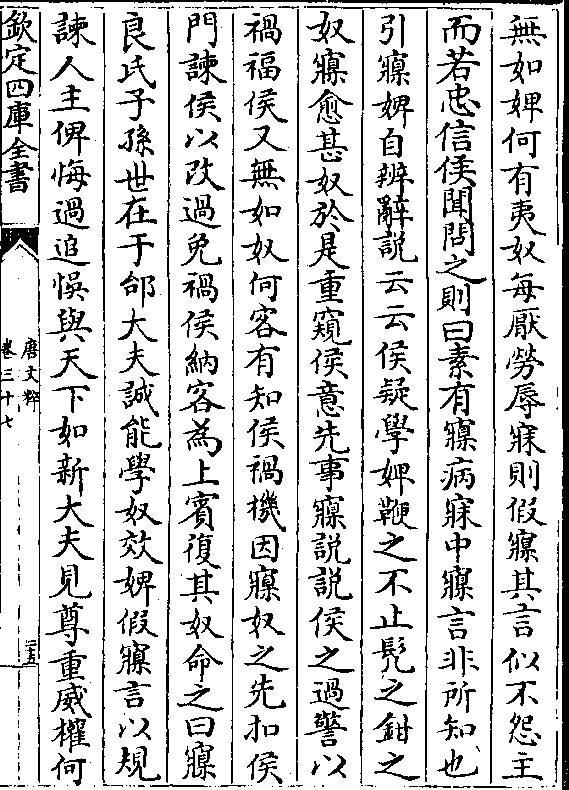 無如婢何有夷奴每厭勞辱寐則假寱其言似不怨主
而若忠信侯聞問之則曰素有寱病寐中寱言非所知也
引寱婢自辨辭說云云侯疑學婢鞭之不止髠之鉗之
奴寱愈甚奴於是重窺侯意先事寱說說侯之過警以
禍福侯又無如奴何客有知侯禍機因寱奴之先扣侯
門諫侯以改過免禍侯納客為上賓復其奴命之曰寱
良氏子孫世在于邰大夫誠能學奴效婢假寱言以規
諫人主俾悔過追悞與天下如新大夫見尊重威權何
欽定四庫全書
唐文粹
卷三十七
三五